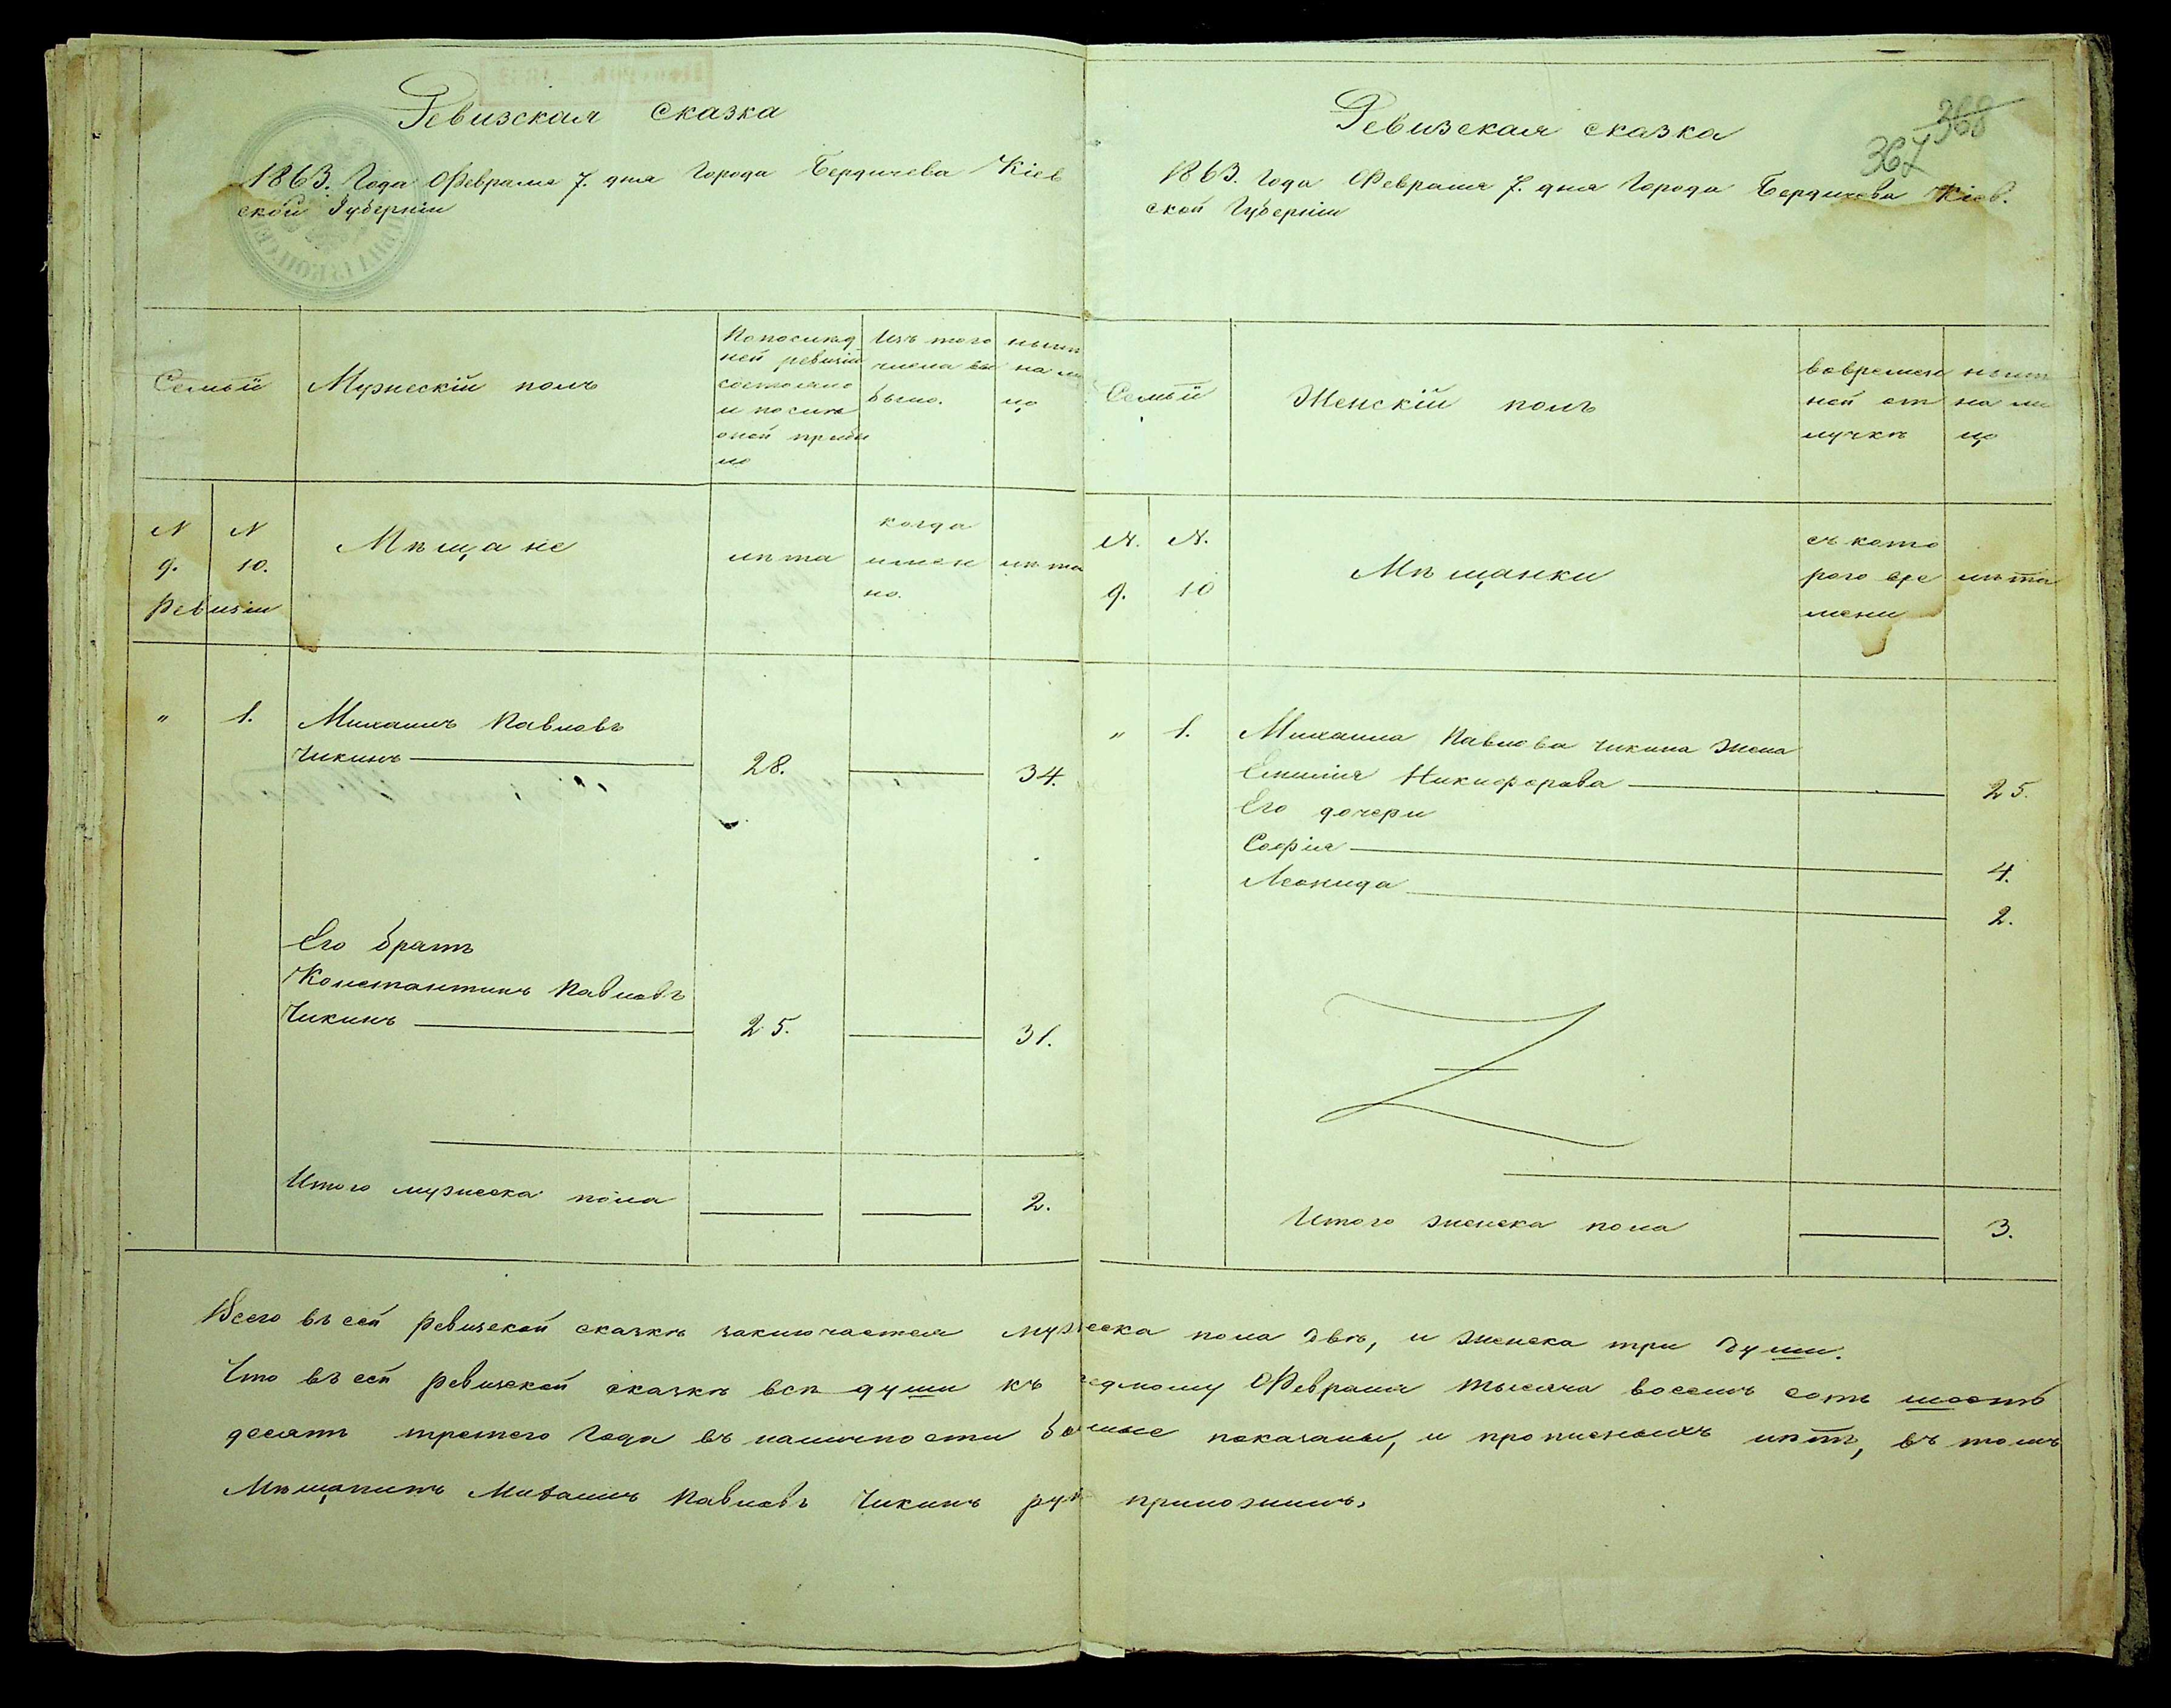 Ревизская сказка
1863. Года Февраля 7. дня Города Бердичева Кіев
ской Губерніи
Семьи
Мужескій полъ
Попослѣд
ней ревизіи
состояло
и послѣ
оной прибы
ло
Изъ того
числа вы
было.
нынѣ
на ли
цо
N
9.
N
10.
Ревизіи
Мѣщане
лѣта
когда
имен
но.
лѣта
" 1. Михаилъ Павловъ
Чикинъ 28. 34.
Его братъ
Константинъ Павловъ
Чикинъ 25. 31.
Итого мужеска пола 2.
Ревизская сказка
368
367
1863. Года Февраля 7. дня Города Бердичева Кіев.
ской Губерніи
Семьи
Женскій полъ
вовремен
ной от
лучкѣ
нынѣ
на ли
цо
N.
9.
N.
10
Мѣщанки
съ кото
рого вре
мени
лѣта
" 1. Михаила Павлова Чикина жена
Емилія Никифорова 25.
Его дочери
Софія 4.
Леонида 2.
Итого женска пола 3.
Всего въ сей ревизской сказкѣ заключается мужеска пола двѣ, и женска три души.
Что въ сей ревизской сказкѣ всѣ души къ седмому Февраля тысяча восемь сотъ шесть
десятъ третего Года въ наличности бывшые показаны, и прописныхъ нѣтъ, въ томъ
Мѣщанинъ Михаилъ Павловъ Чикинъ рук приложилъ.